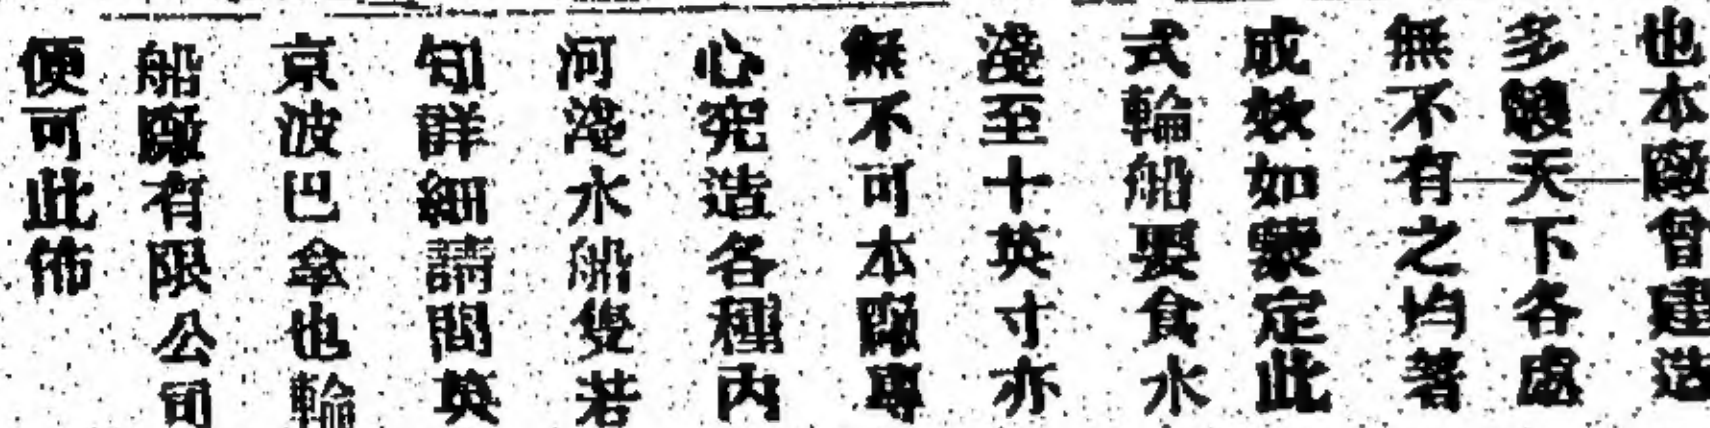 也本廠曾建造
多艘天下各處
無不有之均著
成效如蒙定此
式輪船要食水
淺至十英寸亦
無不可本廠專
心究造各種內
河淺水船隻若
欲詳細請問英
京波巴拿也輪
船廠有限公司
便可此佈